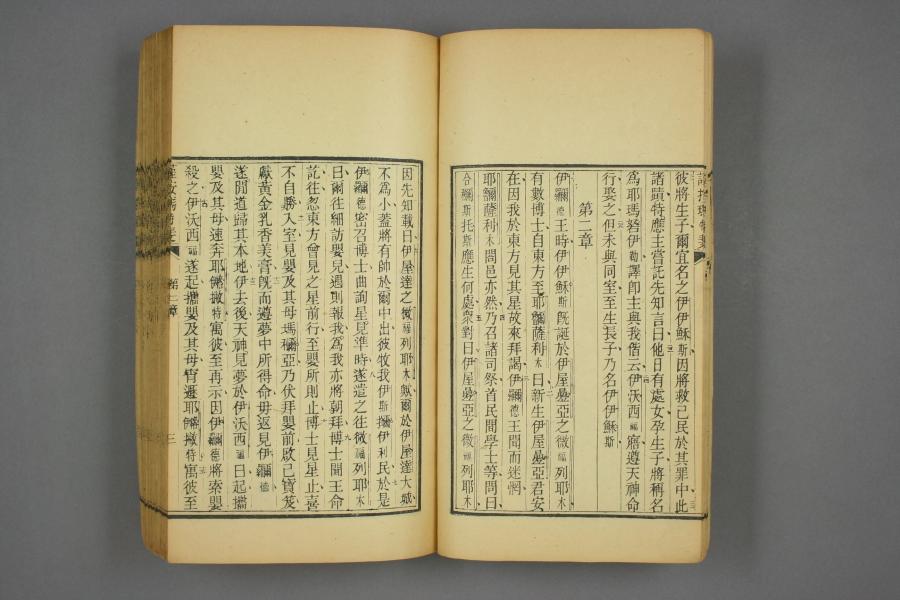 彼將生子爾宜名之伊伊穌斯因將救己民於其罪中此
諸蹟特應主嘗託先知言曰他日有處女孕生子將稱名
為耶瑪努伊勒譯卽主與我偕云伊沃西福寤遵天神命
行娶之但未與同室至生長子乃名伊伊穌斯
第二章
伊德王時伊伊穌斯旣誕於伊屋疊亞之微福列耶木
有數博士自東方至耶薩利木曰新生伊屋疊亞君安
在因我於東方見其星故來拜謁伊德王聞而迷惘
耶薩利木闔邑亦然乃召諸司祭首民間學士等問曰
合斯托斯應生何處衆對曰伊屋疊亞之微福列耶木
因先知載曰伊屋達之微福列耶木歟爾於伊屋達大城
不為小蓋將有帥於爾中出彼牧我伊斯伊利民於是
伊德密召博士曲詢星見準時遂遣之往微福列耶木
曰爾往細訪嬰兒遇則報我為我亦將朝拜博士聞王命
訖往忽東方曾見之星前行至嬰所則止博士見星止喜
不自勝入室見嬰及其母瑪亞乃伏拜嬰前啟己寶笈
獻黃金乳香美膏旣而遵夢中所得命毋返見伊德
遂閒道歸其本地伊去後天神見夢於伊沃西福曰起攜
嬰及其母速奔特寓彼至再示因伊德將索嬰
殺之伊沃西福遂起攜嬰及其母宵遯特寓彼至
第二章
三